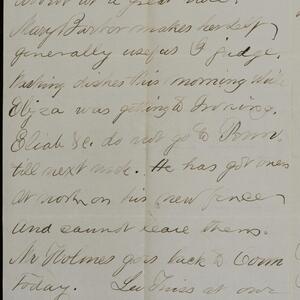 about at a great rate.
Mary Barbor makes herself
generally useful I judge.
Washing dishes this morning while
Eliza was getting to Ironing.
Eliab &c. do not go to Conn.
till next week. He has got men
at work on his new fence
and cannot leave them.
Mr Holmes goes back to Conn
today. at our